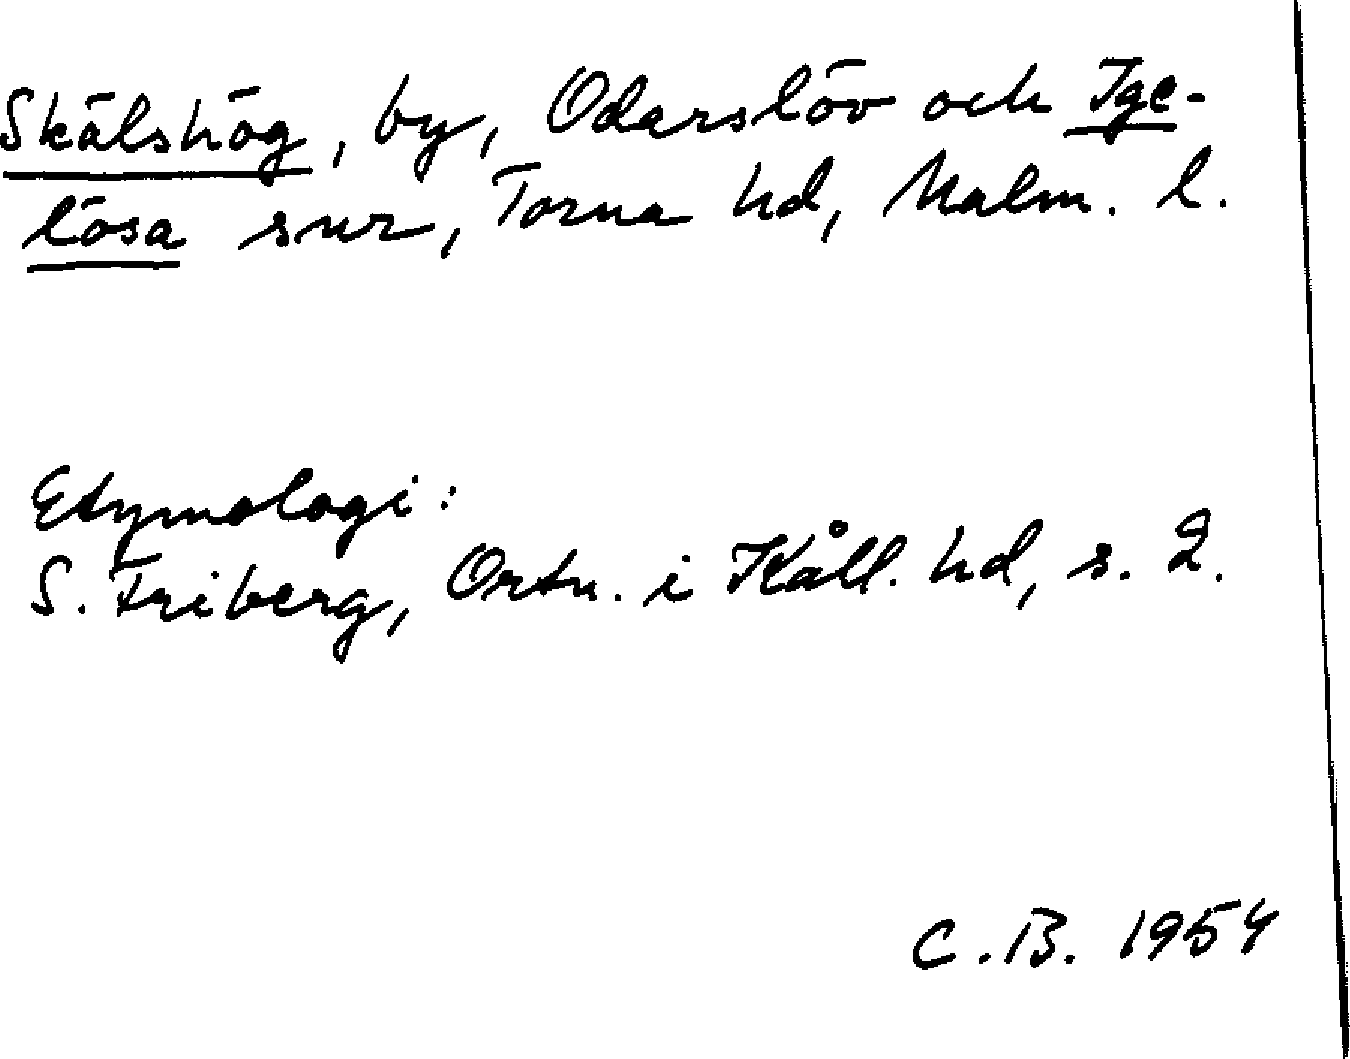 Skälshög, by, Odarslöv och Ige-
lösa snr, Torna hd, Malm. l.
Etymologi:
S. Friberg, Ortn. i Kåll. hd, s. 2.
C.B. 1954